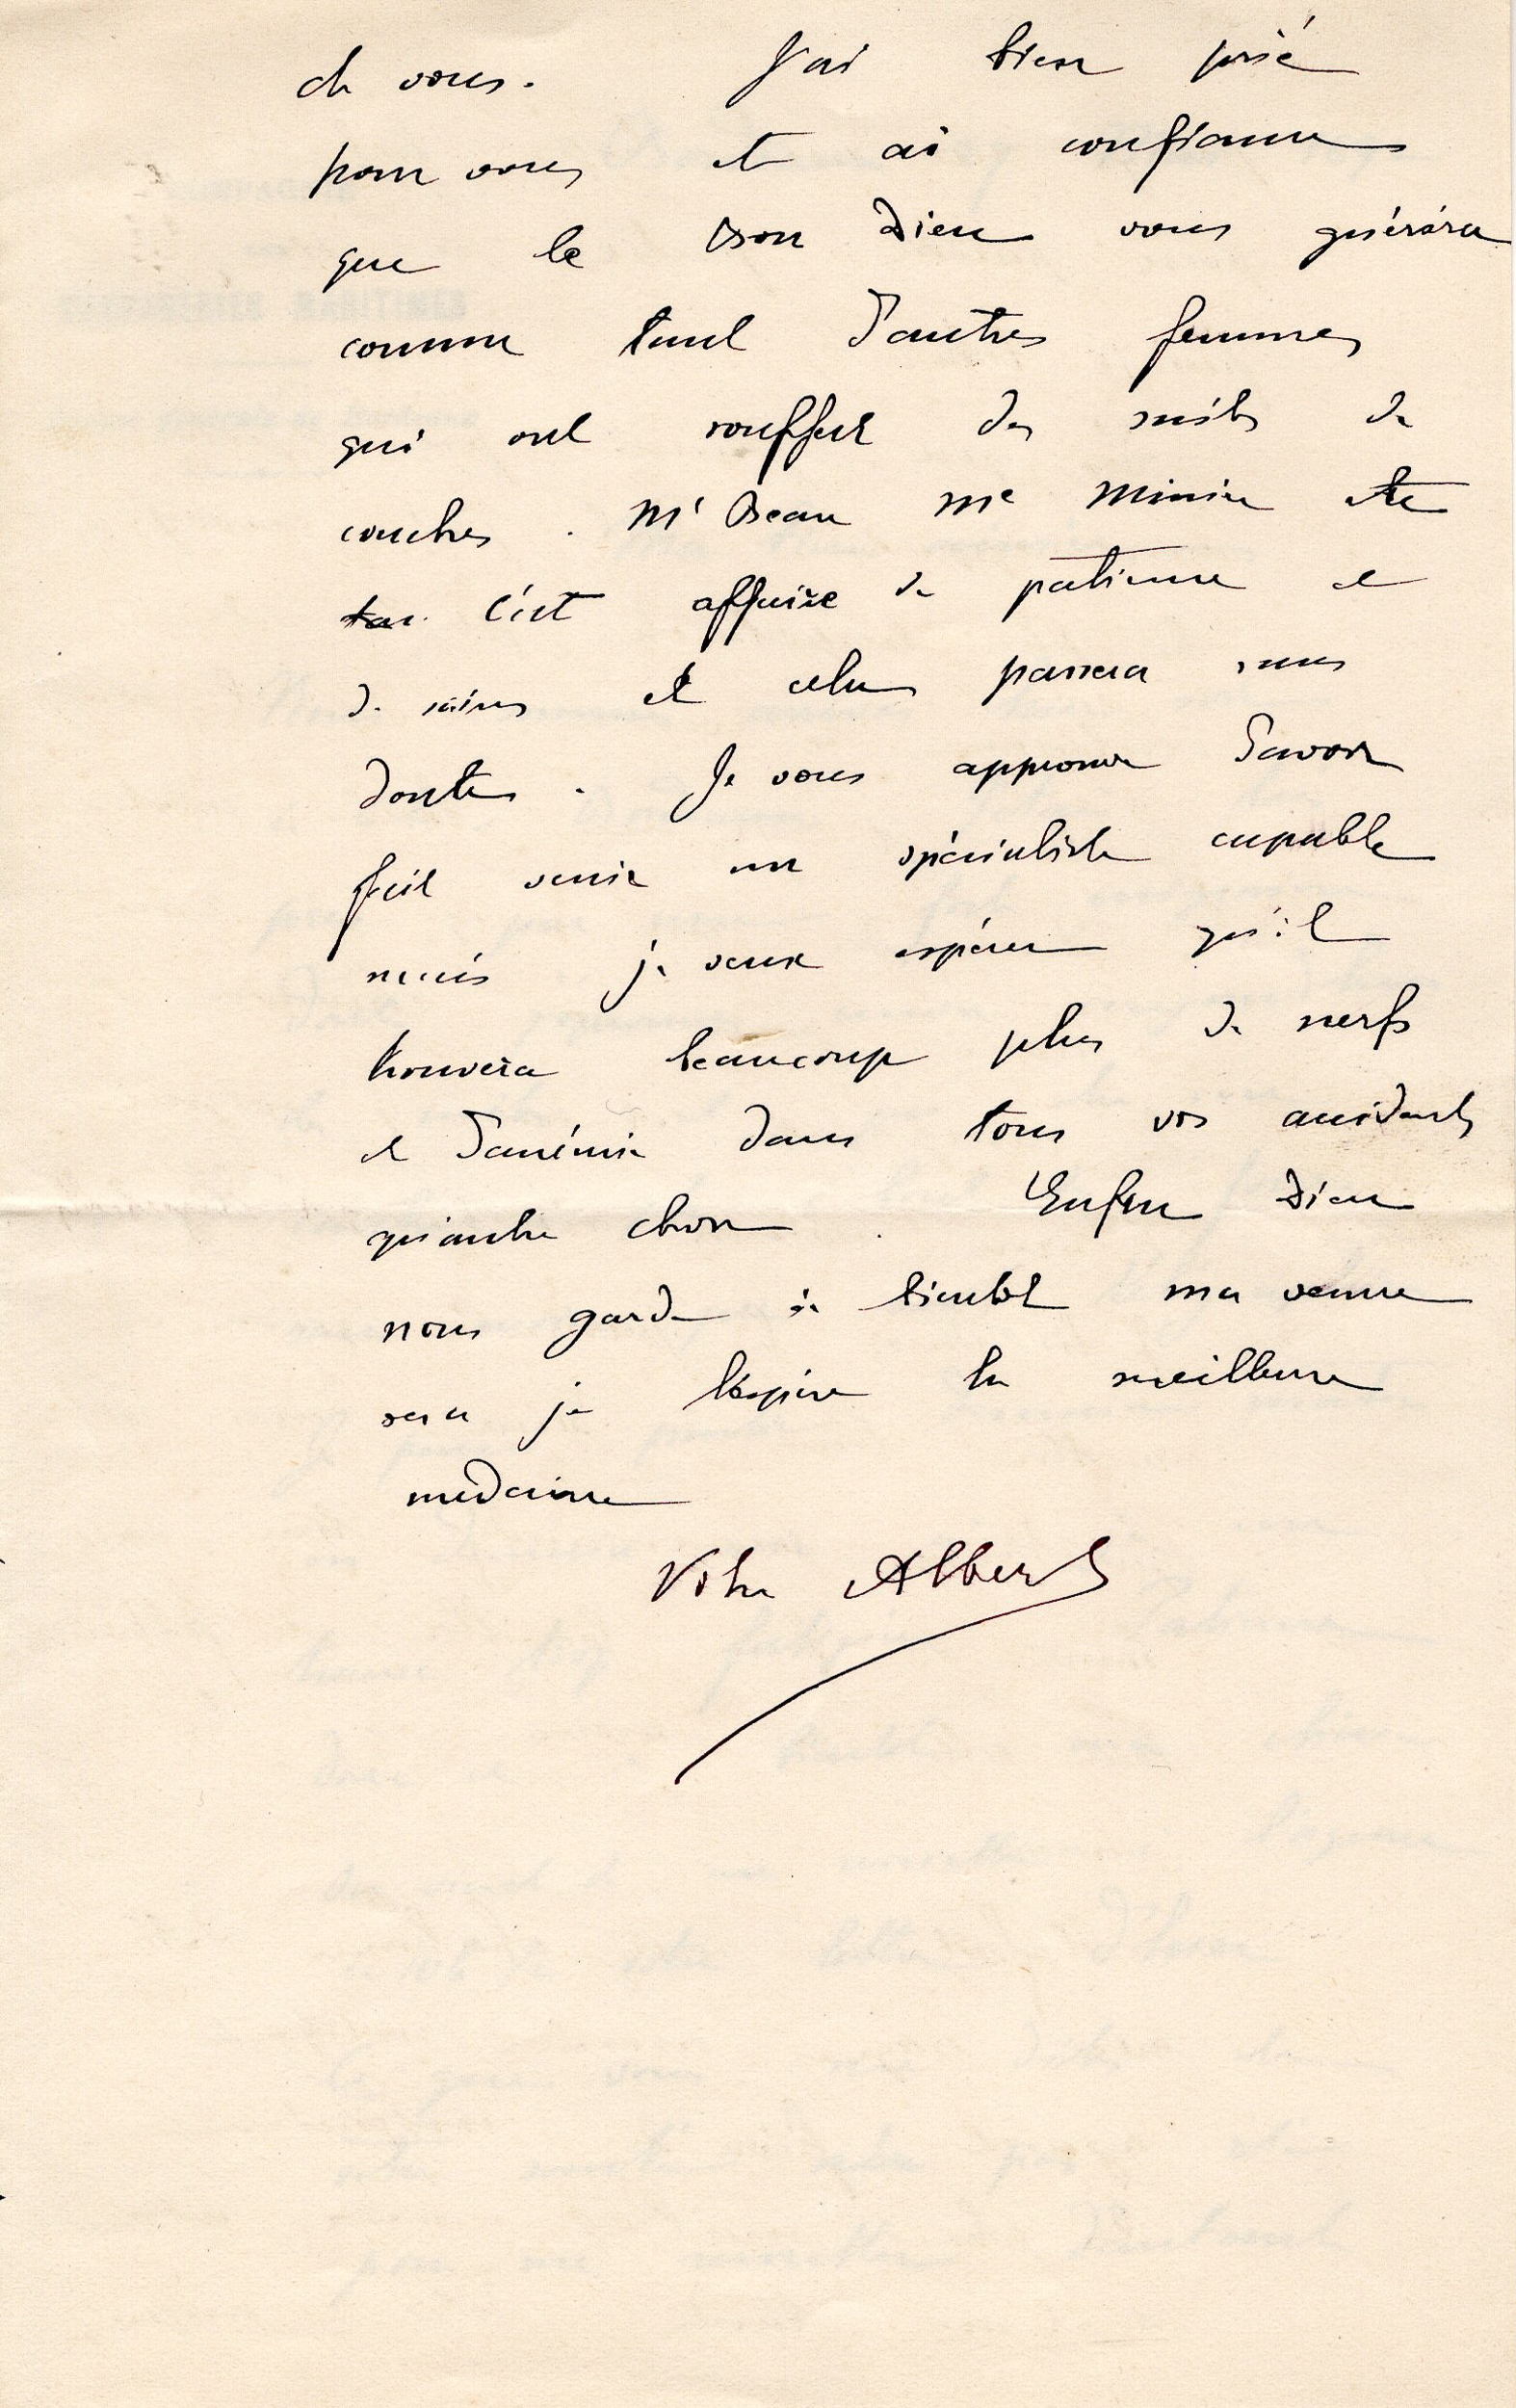 de vous. J'ai bien prié
pour vous et ai confiance
que le Bon Dieu vous guérira
comme tant d'autres femmes
qui ont souffert des suites de
couches. Mr Beau Me Minier etc
C'est affaire de patience et
de soins et cela passera sans
doute. Je vous approuve d'avoir
fait venir un spécialiste capable
mais je veux espérer qu'il
trouvera beaucoup plus de nerfs
et d'anémie dans tous vos accidents
qu'autre chose. Enfin Dieu
nous garde à bientôt ma venue
sera je l'espère la meilleure
médecine
Votre Albert